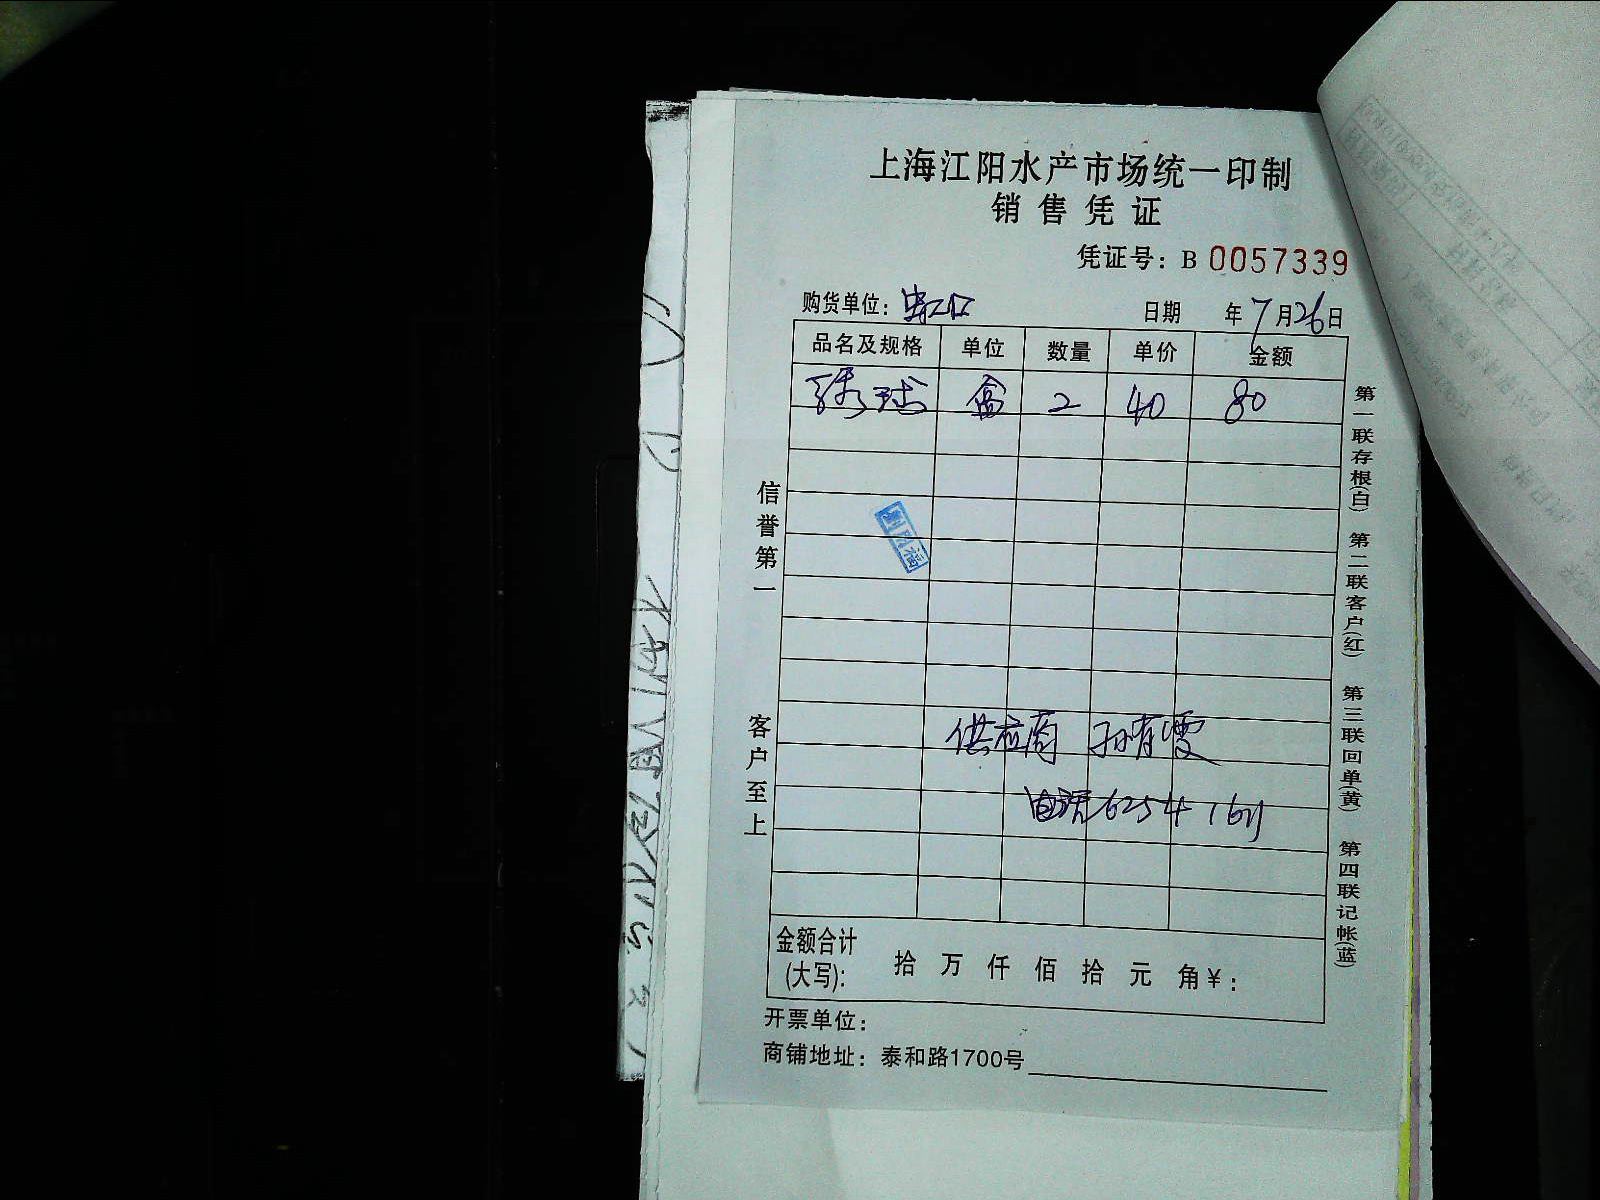 上海江阳水产市场统一印制
销售凭证
凭证号：B 0057339
购货单位：
日期 年7月26日
品名及规格 单位 数量 单价 金额
绣球 盒 2 40 80
信誉第一
客户至上
供应商 孙肖雯
电话6254 1611
第一联存根(白) 第二联客户(红) 第三联回单(黄) 第四联记帐(蓝)
金额合计
(大写): 拾 万 仟 佰 拾 元 角 ¥：
开票单位：
商铺地址：泰和路1700号